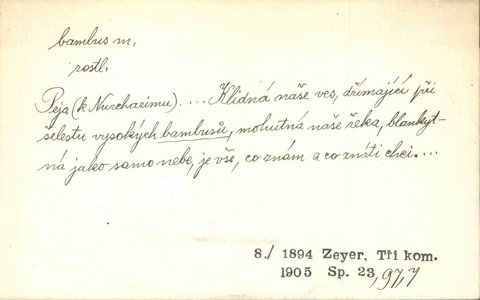 bambus m.
rostl.
Peja (k Nurcharimu). ... Klidná naše ves, dřímající při
šelestu vysokých bambusů, mohutná naše řeka, blankyt-
ná jako samo nebe, je vše, co znám a co znáti chci. ...
8./ 1894 Zeyer, Tři kom.
1905 Sp. 23, 97, 7